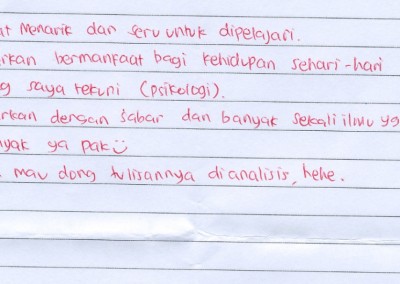 at menarik dan seru untuk dipelajari.
rkan bermanfaat bagi kehidupan sehari-hari
g saya tekuni (psikologi).
rkan dengan sabar dan banyak sekali ilmu yg
nyak ya pak
mau dong tulisannya dianalisis, hehe.